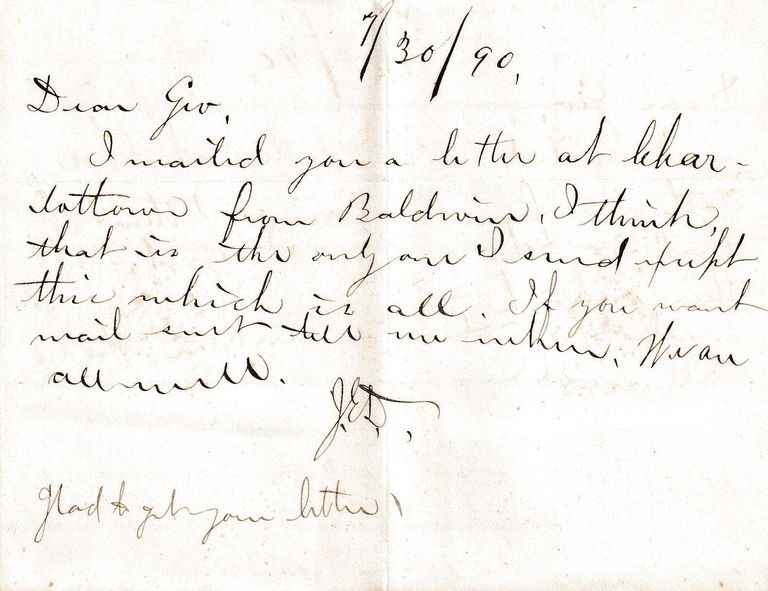 7/30/90,
Dear Geo,
I mailed you a letter at Char-
lottown from Baldwin, I think,
that is the only one I send except
this which is all. If you want
mail sent tell me when. We are
all well.
J.E.D.,
Glad to get your letter